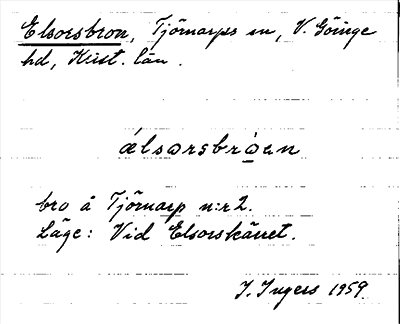 Elsorsbron, Tjörnarps sn, V. Göinge
hd, Krist. län.
ǽlsorsbrọ́en
bro å Tjörnarp n:r 2.
Läge: Vid Elsorskäret.
I. Ingers 1959.